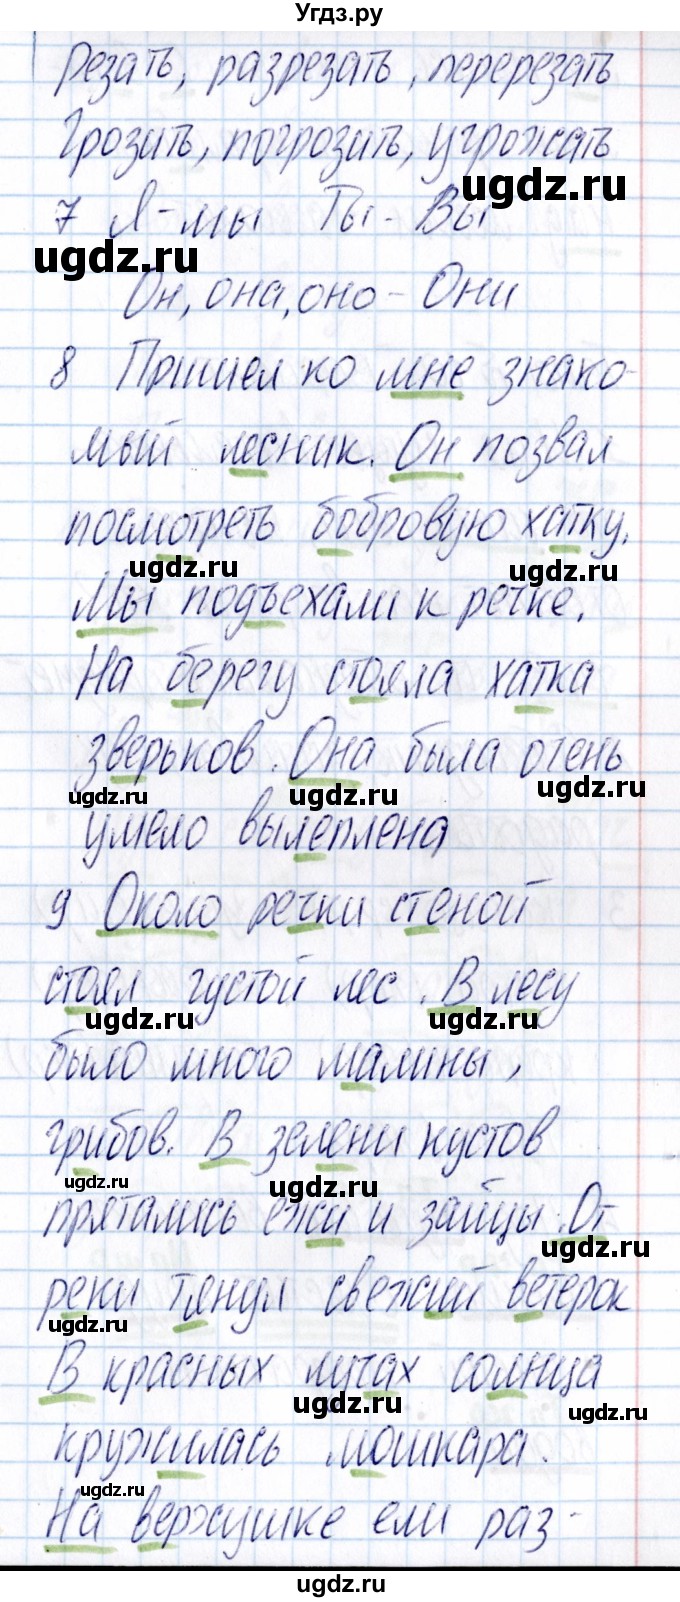 Угдз.ру
Резать, разрезать, перерезать
Грозить, погрозить, угрожать
ugdz.ru
7 Я-мы Ты-Вы
ugdz.ru
Он, она, оно - Они
8 Пришел ко мне знако-
мый лесник. Он позвал
посмотреть бобровую хатку.
ugdz.ru ugdz.ru
Мы подъехали к речке.
На берегу стояла хатка
зверьков. Она была очень
ugdz.ru ugdz.ru ugdz.ru
умело вылеплена
9 Около речки стеной
стоял густой лес. В лесу
ugdz.ru ugdz.ru
было много малины,
грибов. В зелени кустов
ugdz.ru ugdz.ru
прятались ежи и зайцы. От
ugdz.ru
реки тянул свежий ветерок
ugdz.ru
В красных лучах солнца
ugdz.ru ugdz.ru
кружилась мошкара.
ugdz.ru
На вержушке ели раз-
ugdz.ru